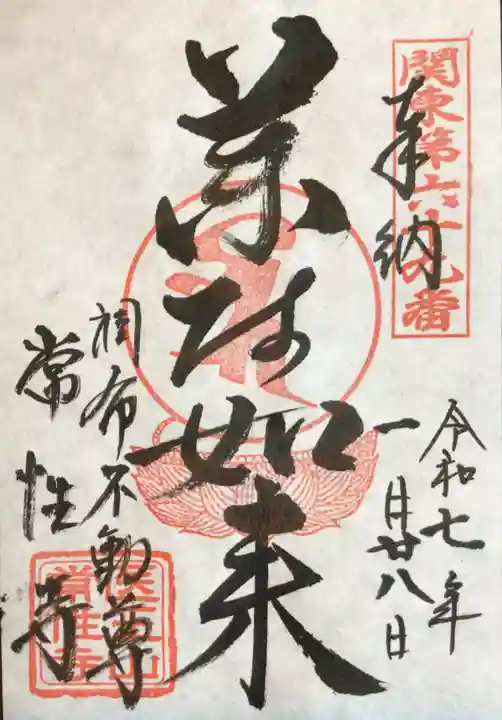 関東第六十九番
奉納
令和七年
一月廿八日
薬師如来
調布不動尊
常性寺
常性寺